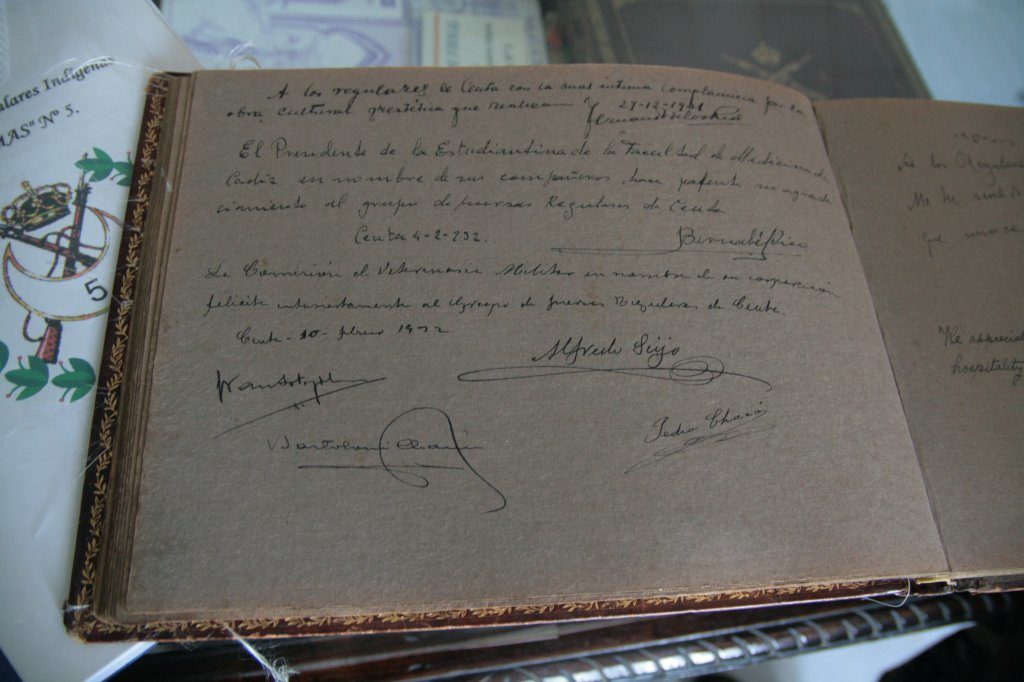 ulares Indígenas
MAS" Nº 5.
5
A los regulares de Ceuta con la mas intima complacencia por la
obra cultural y artística que realizan
27-12-1931
El Presidente de la Estudiantina de la Facultad de Medicina de
Cadiz en nombre de sus compañeros, hace patente su agrade
cimiento al grupo de fuerzas Regulares de Ceuta
Ceuta 4-2-932.
Bernabé Rico
La Comisión de Veterinaria Militar en nombre de su corporación
felicita al Grupo de fuerzas Regulares de Ceuta.
Ceuta - 10 - febrero 1932
Alfredo
Pedro
Bartolomé
a los Regula
Me he
que nunca
We appreciat
hospitality